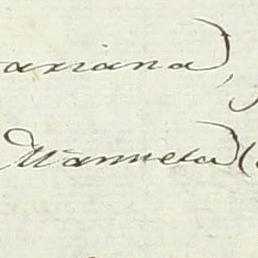 ariana),
Manuela (